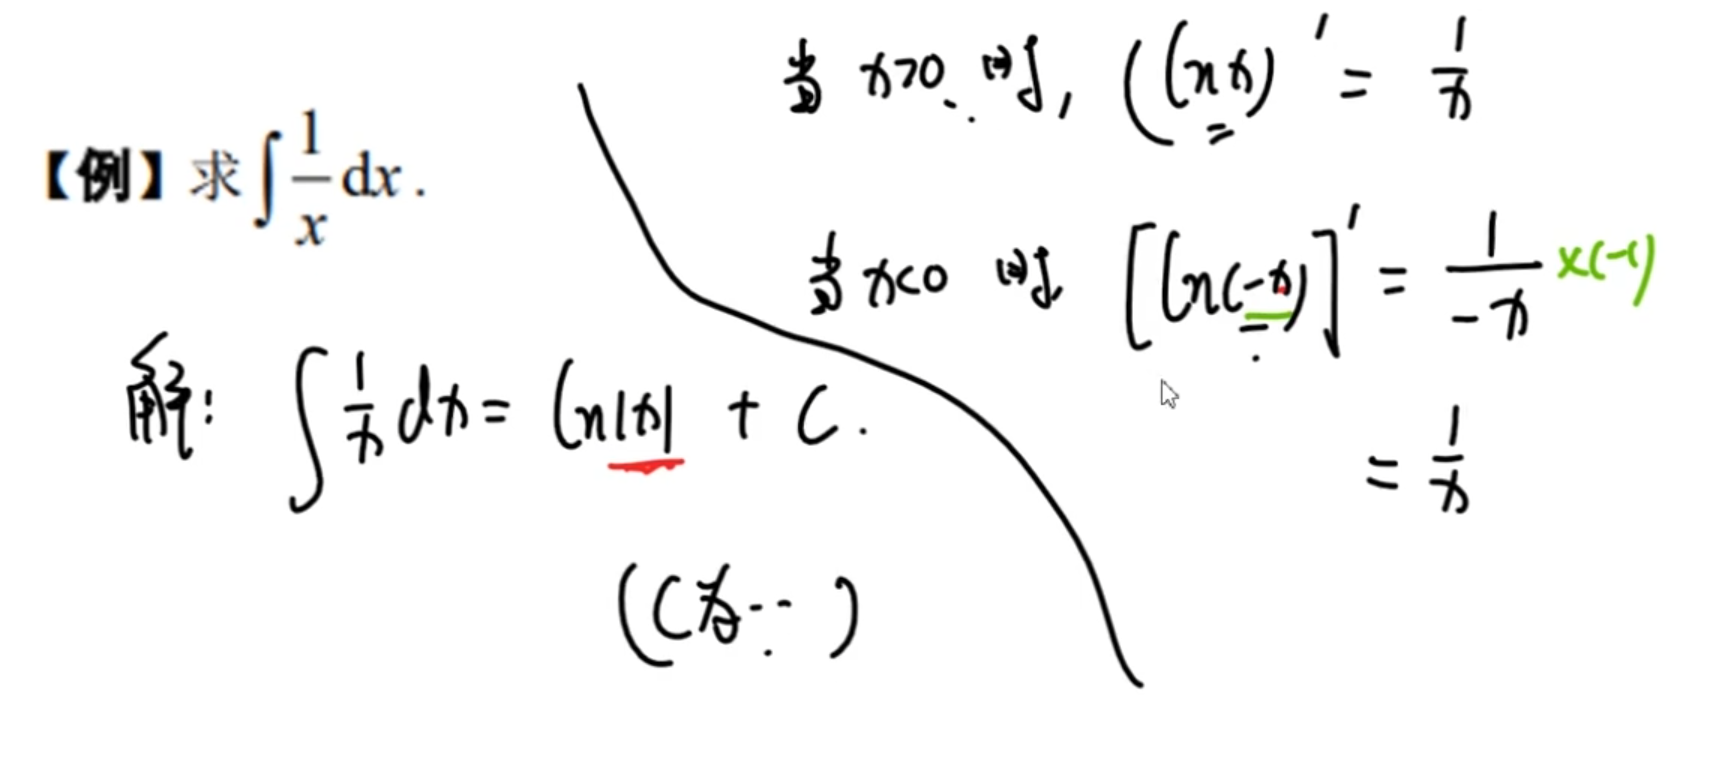 【例】求∫ 1/x dx.
解: ∫ 1/x dx = ln|x| + C.
(C为…)
当 x>0 时, (ln x)' = 1/x
当 x<0 时, [ln(-x)]' = 1/-x ×(-1)
= 1/x